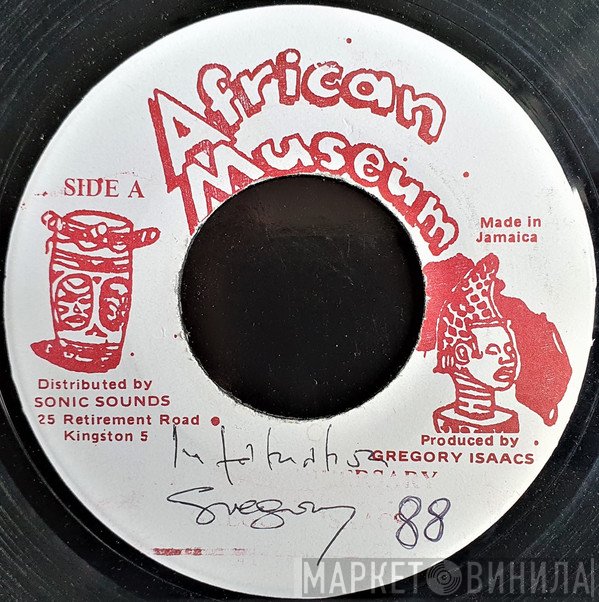 African
Museum
SIDE A
Made in
Jamaica
Distributed by
SONIC SOUNDS
25 Retirement Road
Kingston 5
Produced by
GREGORY ISAACS
Infatuation
Gregory 88
МАРКЕТ ВИНИЛА